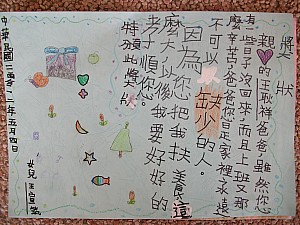 獎狀
親的王耿祥爸爸雖然您
有一些日子沒回來而且上班又那
麼辛苦爸爸您是家裡永遠
不可以缺少的人。
因為您把我扶養這
麼大以後我要好好的
孝順您。
特頒此獎狀
女兒王宣
中華民國二零一二年五月四日